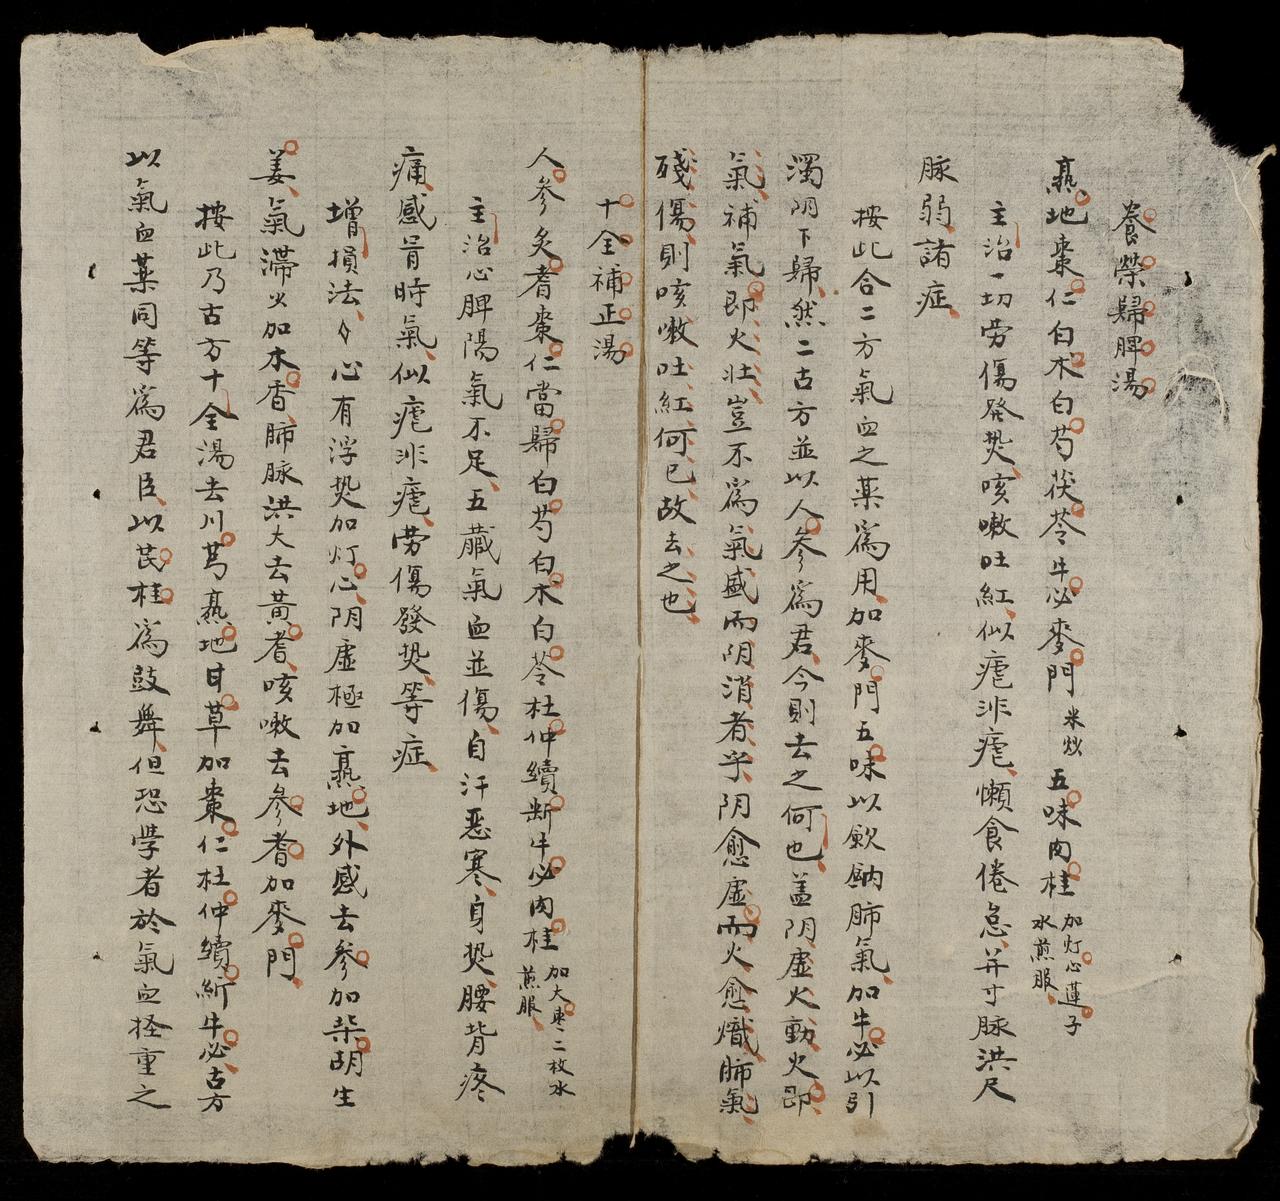 養榮歸脾湯
熟地棗仁白朮白芍茯苓牛必麥門米炒五味肉桂加灯心蓮子水煎服
主治一切劳傷發𤍠咳嗽吐紅似瘧非瘧懶食倦怠并寸脉洪尺
脉弱諸症
按此合二方氣血之薬爲用加麥門五味以歛納肺氣加牛必以引
濁阴下歸然二古方並以人參爲君今則去之何也盖阴虛火動火即
氣補氣即火壯豈不爲氣盛而阴消者乎阴愈虛而火愈熾肺氣
殘傷則咳嗽吐紅何已故去之也
十全補正湯
人參炙耆棗仁當歸白芍白朮白苓杜仲續断牛必肉桂加大枣二枚水煎服
主治心脾陽氣不足五臟氣血並傷自汗惡寒身𤍠腰背疼
痛感冐時氣似瘧非瘧劳傷發𤍠等症
增損法〻心有浮𤍠加灯心阴虛極加熟地外感去參加柴胡生
姜氣滯火加木香肺脉洪大去黄耆咳嗽去參耆加麥門
按此乃古方十全湯去川芎熟地甘草加棗仁杜仲續断牛必古方
以氣血薬同等爲君臣以芪桂爲鼓舞但恐学者於氣血轻重之